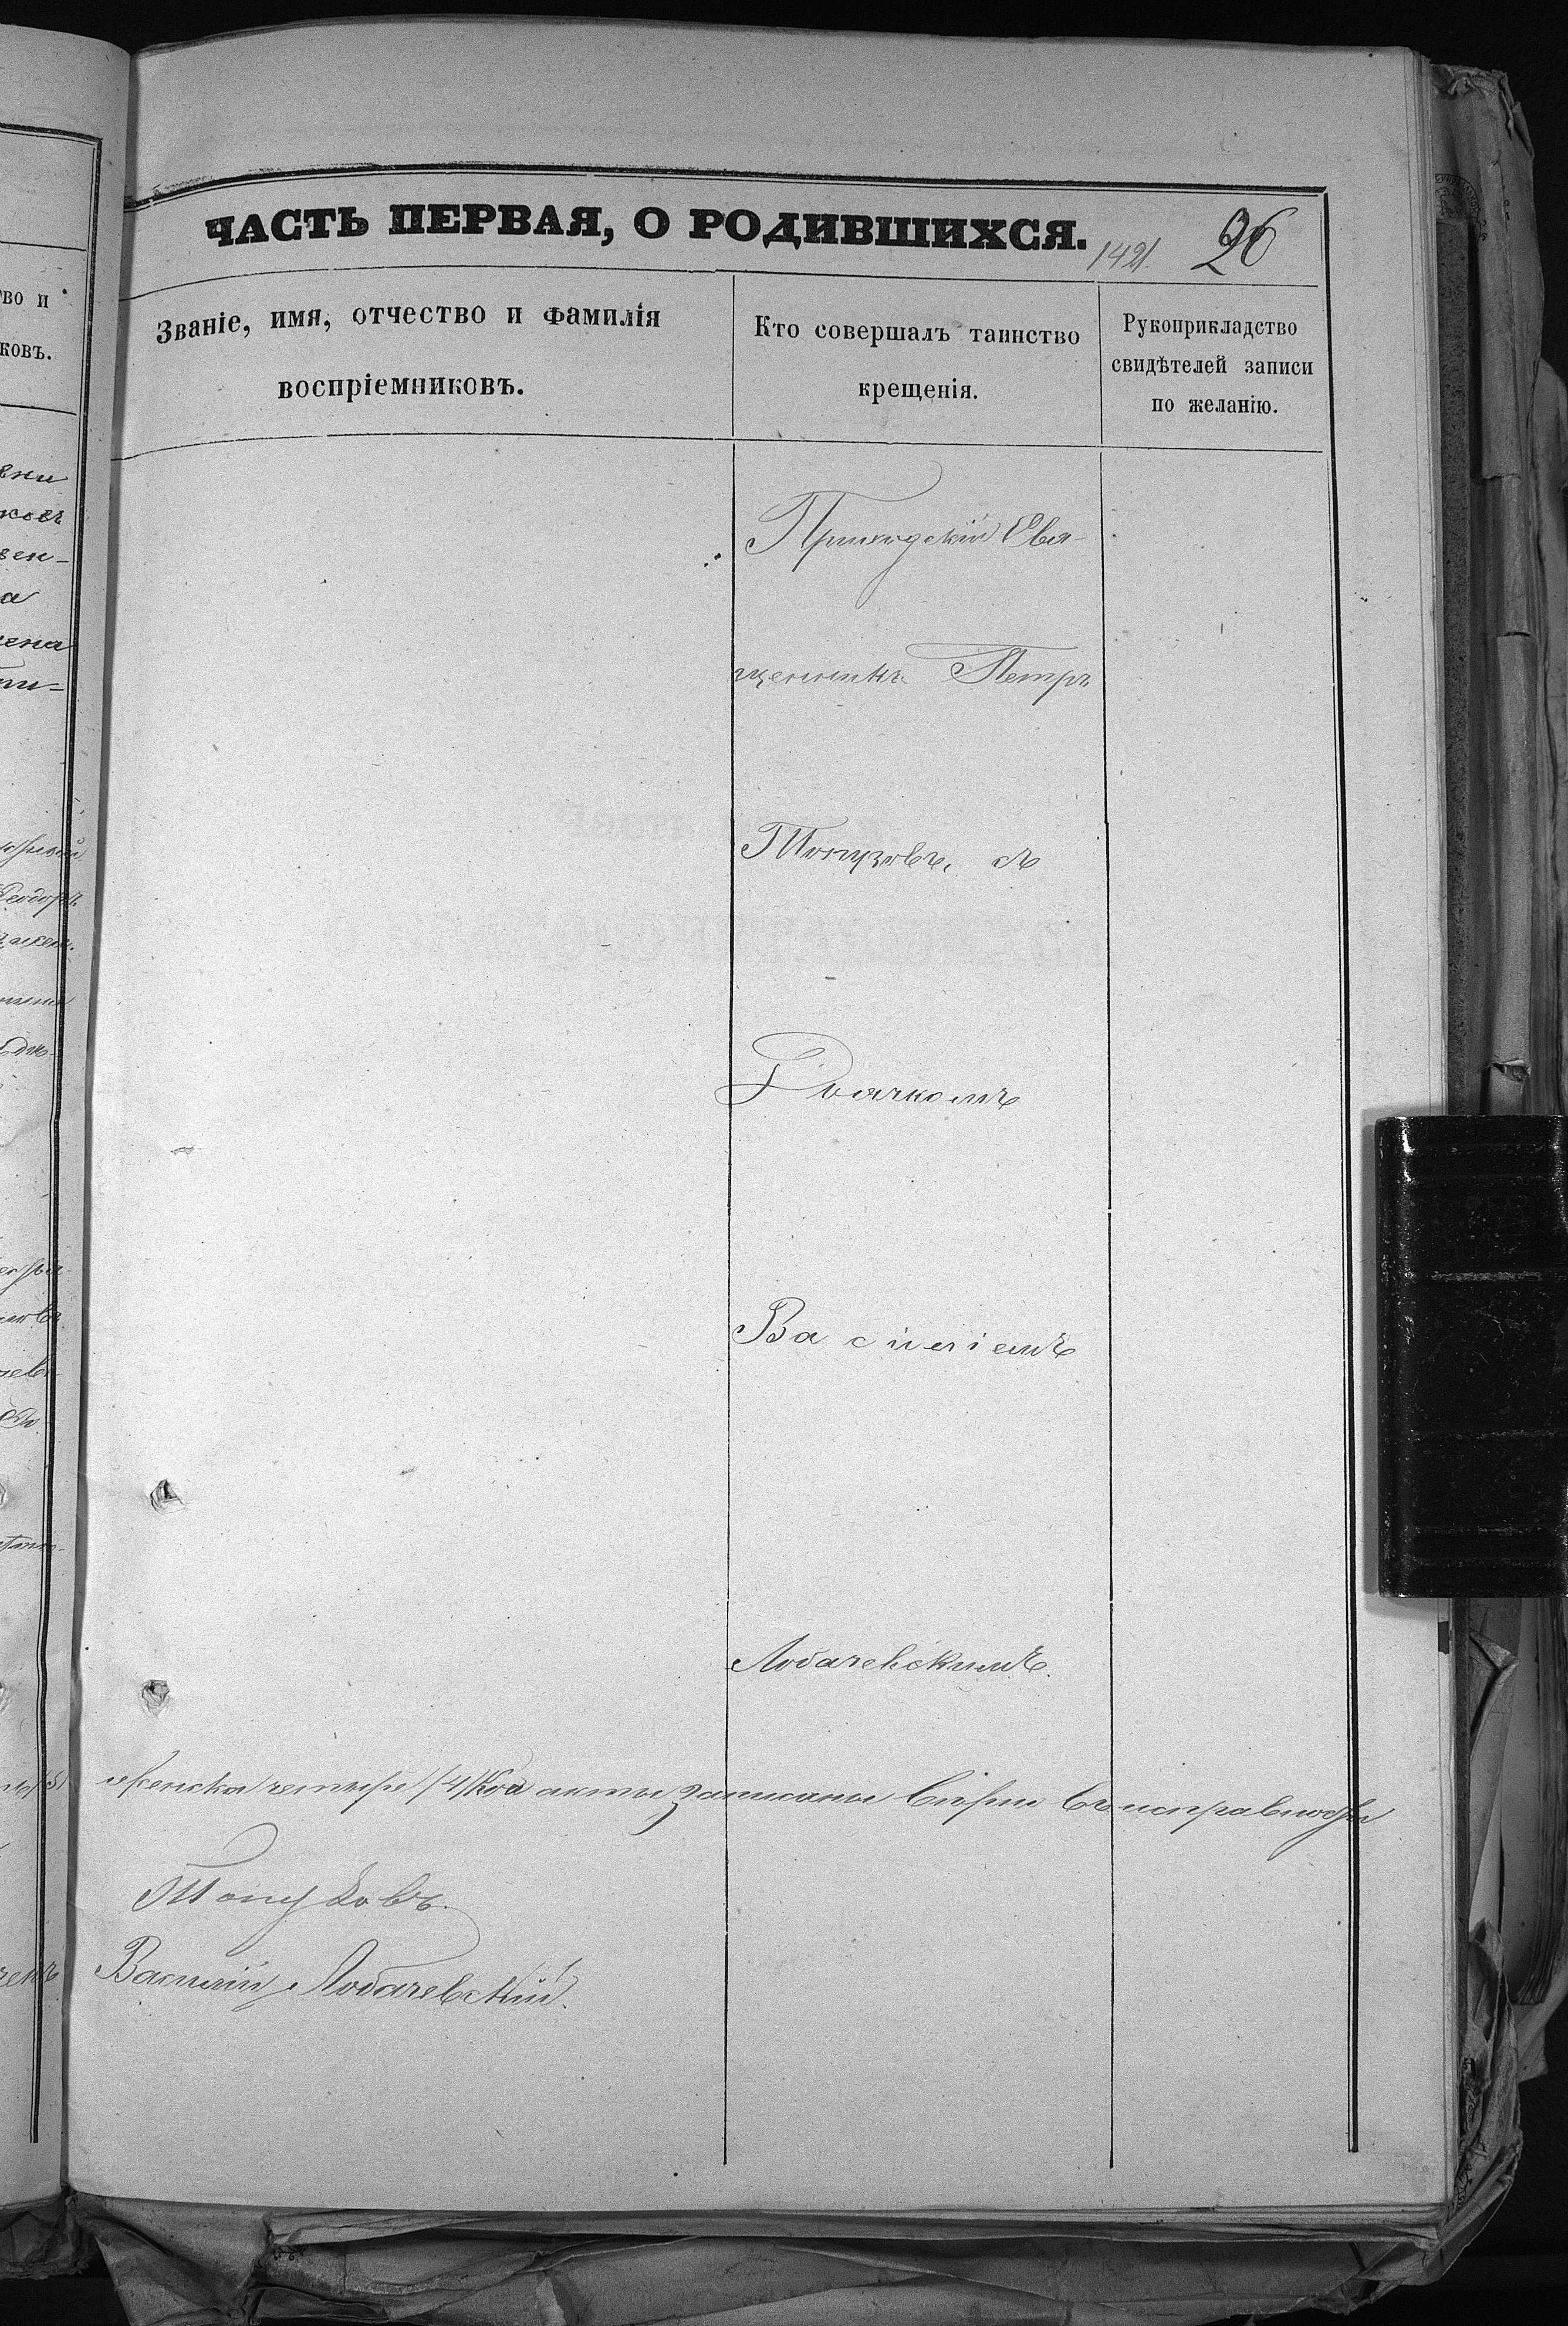 ЧАСТЬ ПЕРВАЯ, О РОДИВШИХСЯ.
1421. 26
Званіе, имя, отчество и фамилія
воспріемниковъ.
Кто совершалъ таинство
крещенія.
Рукоприкладство
свидѣтелей записи
по желанію.
Приходскій Свя-
щенникъ Петръ
Топузовъ, съ
Дьячкомъ
Василіемъ
Лобачевскимъ.
женска четыре (4) акты записаны вѣрно въ исправности
Топузовъ.
Василій Лобачевскій.